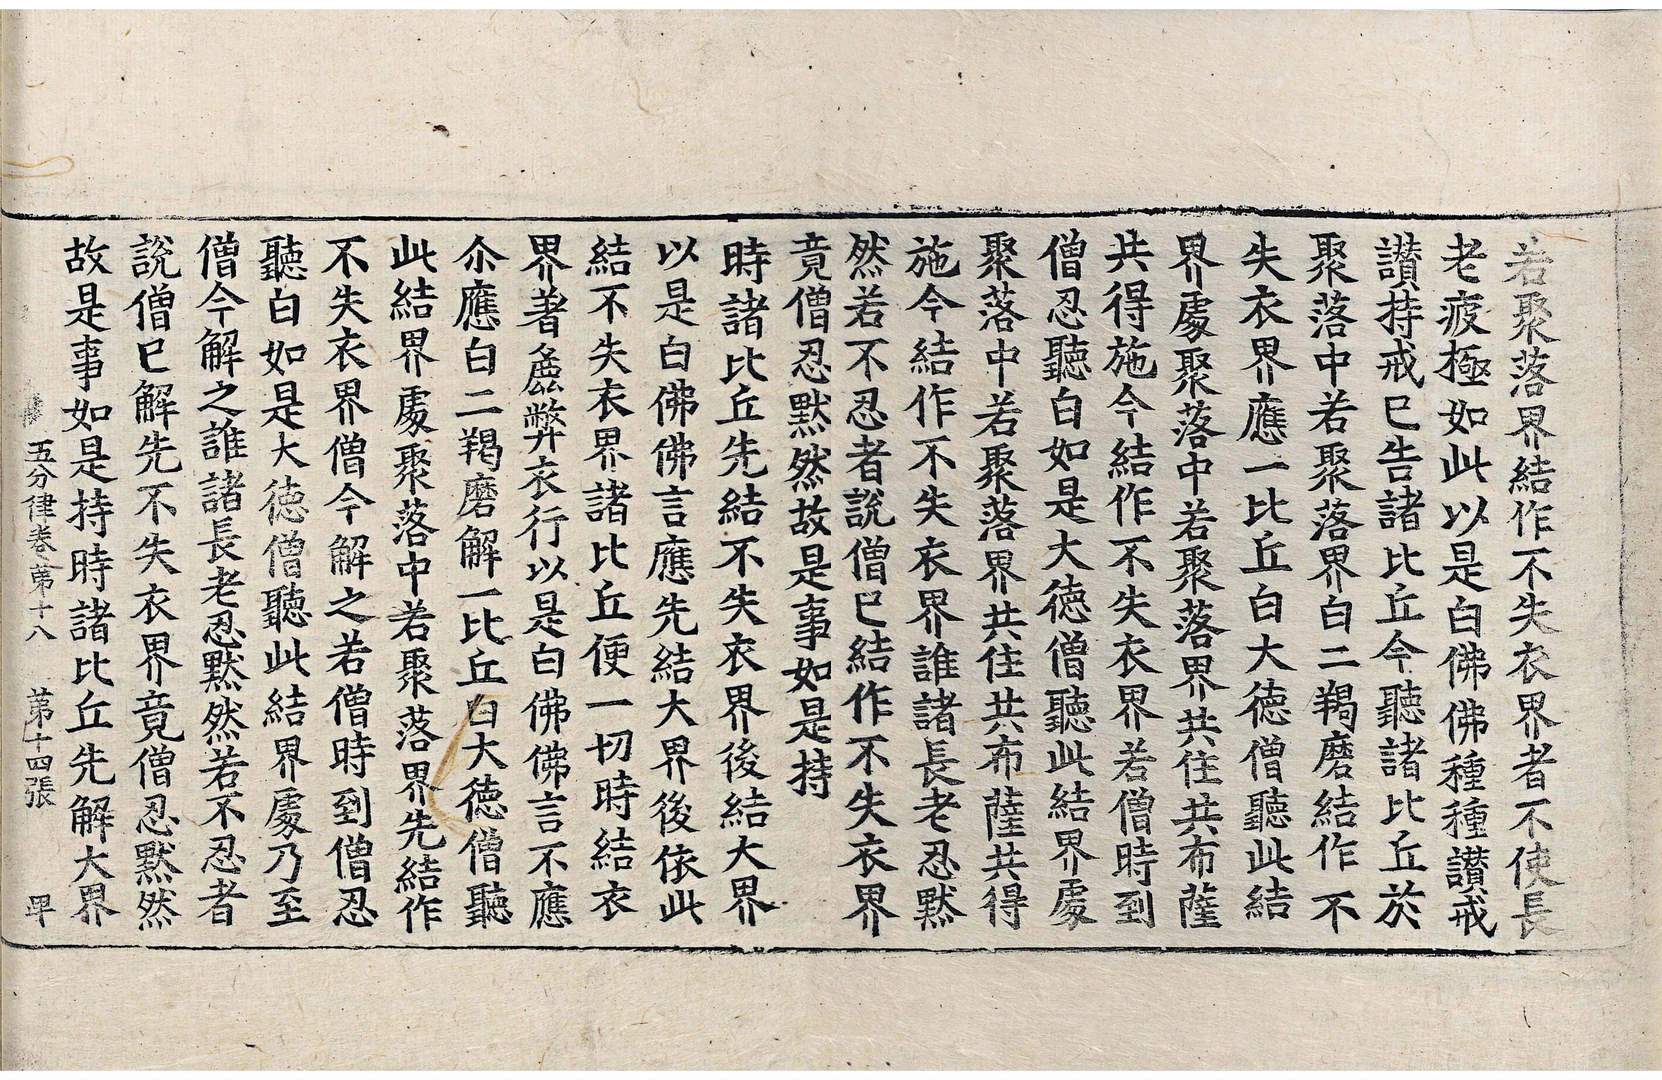 若聚落界結作不失衣界者不使長
老疲極如此以是白佛佛種種讃戒
讃持戒已告諸比丘今聽諸比丘於
聚落中若聚落界白二羯磨結作不
失衣界應一比丘白大德僧聽此結
界處聚落中若聚落界共住共布薩
共得施今結作不失衣界若僧時到
僧忍聽白如是大德僧聽此結界處
聚落中若聚落界共住共布薩共得
施今結作不失衣界誰諸長老忍黙
然若不忍者說僧已結作不失衣界
竟僧忍黙然故是事如是持
時諸比丘先結不失衣界後結大界
以是白佛佛言應先結大界後依此
結不失衣界諸比丘便一切時結衣
界著麁弊衣行以是白佛佛言不應
尒應白二羯磨解一比丘白大德僧聽
此結界處聚落中若聚落界先結作
不失衣界僧今解之若僧時到僧忍
聽白如是大德僧聽此結界處乃至
僧今解之誰諸長老忍黙然若不忍者
說僧已解先不失衣界竟僧忍黙然
故是事如是持時諸比丘先解大界
五分律卷第十八 第十四張